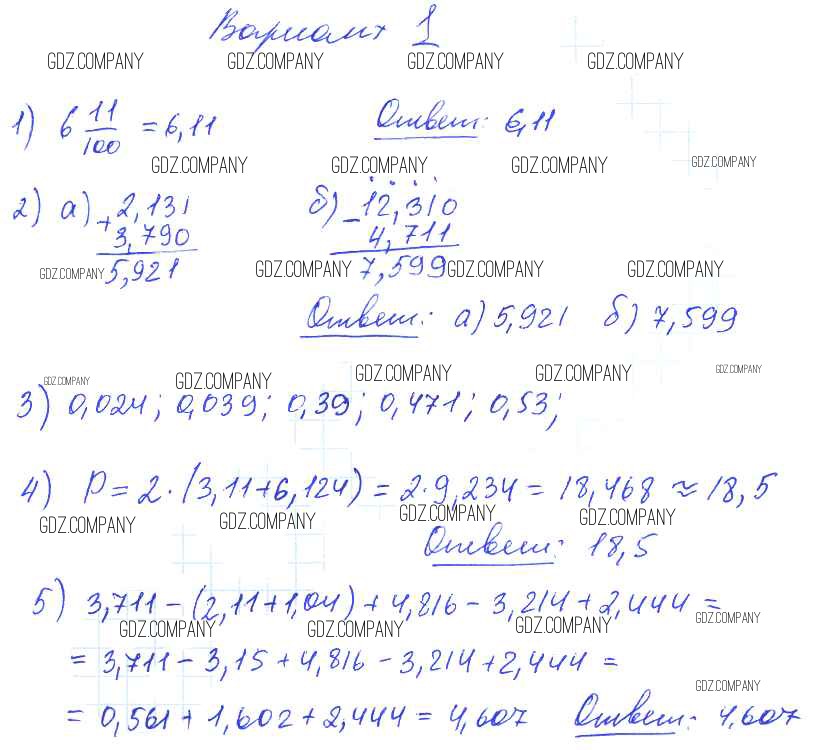 Вариант 1
GDZ.COMPANY GDZ.COMPANY GDZ.COMPANY GDZ.COMPANY
1) 6 11/100 = 6,11 Ответ: 6,11
GDZ.COMPANY GDZ.COMPANY GDZ.COMPANY GDZ.COMPANY
2) а) + 2,131 б) − 12,310
3,790 4,711
GDZ.COMPANY 5,921 GDZ.COMPANY 7,599 GDZ.COMPANY GDZ.COMPANY
Ответ: а) 5,921 б) 7,599
GDZ.COMPANY GDZ.COMPANY GDZ.COMPANY GDZ.COMPANY GDZ.COMPANY
3) 0,024; 0,039; 0,39; 0,471; 0,53;
4) P = 2·(3,11+6,124) = 2·9,234 = 18,468 ≈ 18,5
GDZ.COMPANY GDZ.COMPANY GDZ.COMPANY GDZ.COMPANY
Ответ: 18,5
5) 3,711 − (2,11+1,04) + 4,816 − 3,214 + 2,444 =
GDZ.COMPANY GDZ.COMPANY GDZ.COMPANY GDZ.COMPANY
= 3,711 − 3,15 + 4,816 − 3,214 + 2,444 =
GDZ.COMPANY
= 0,561 + 1,602 + 2,444 = 4,607 Ответ: 4,607